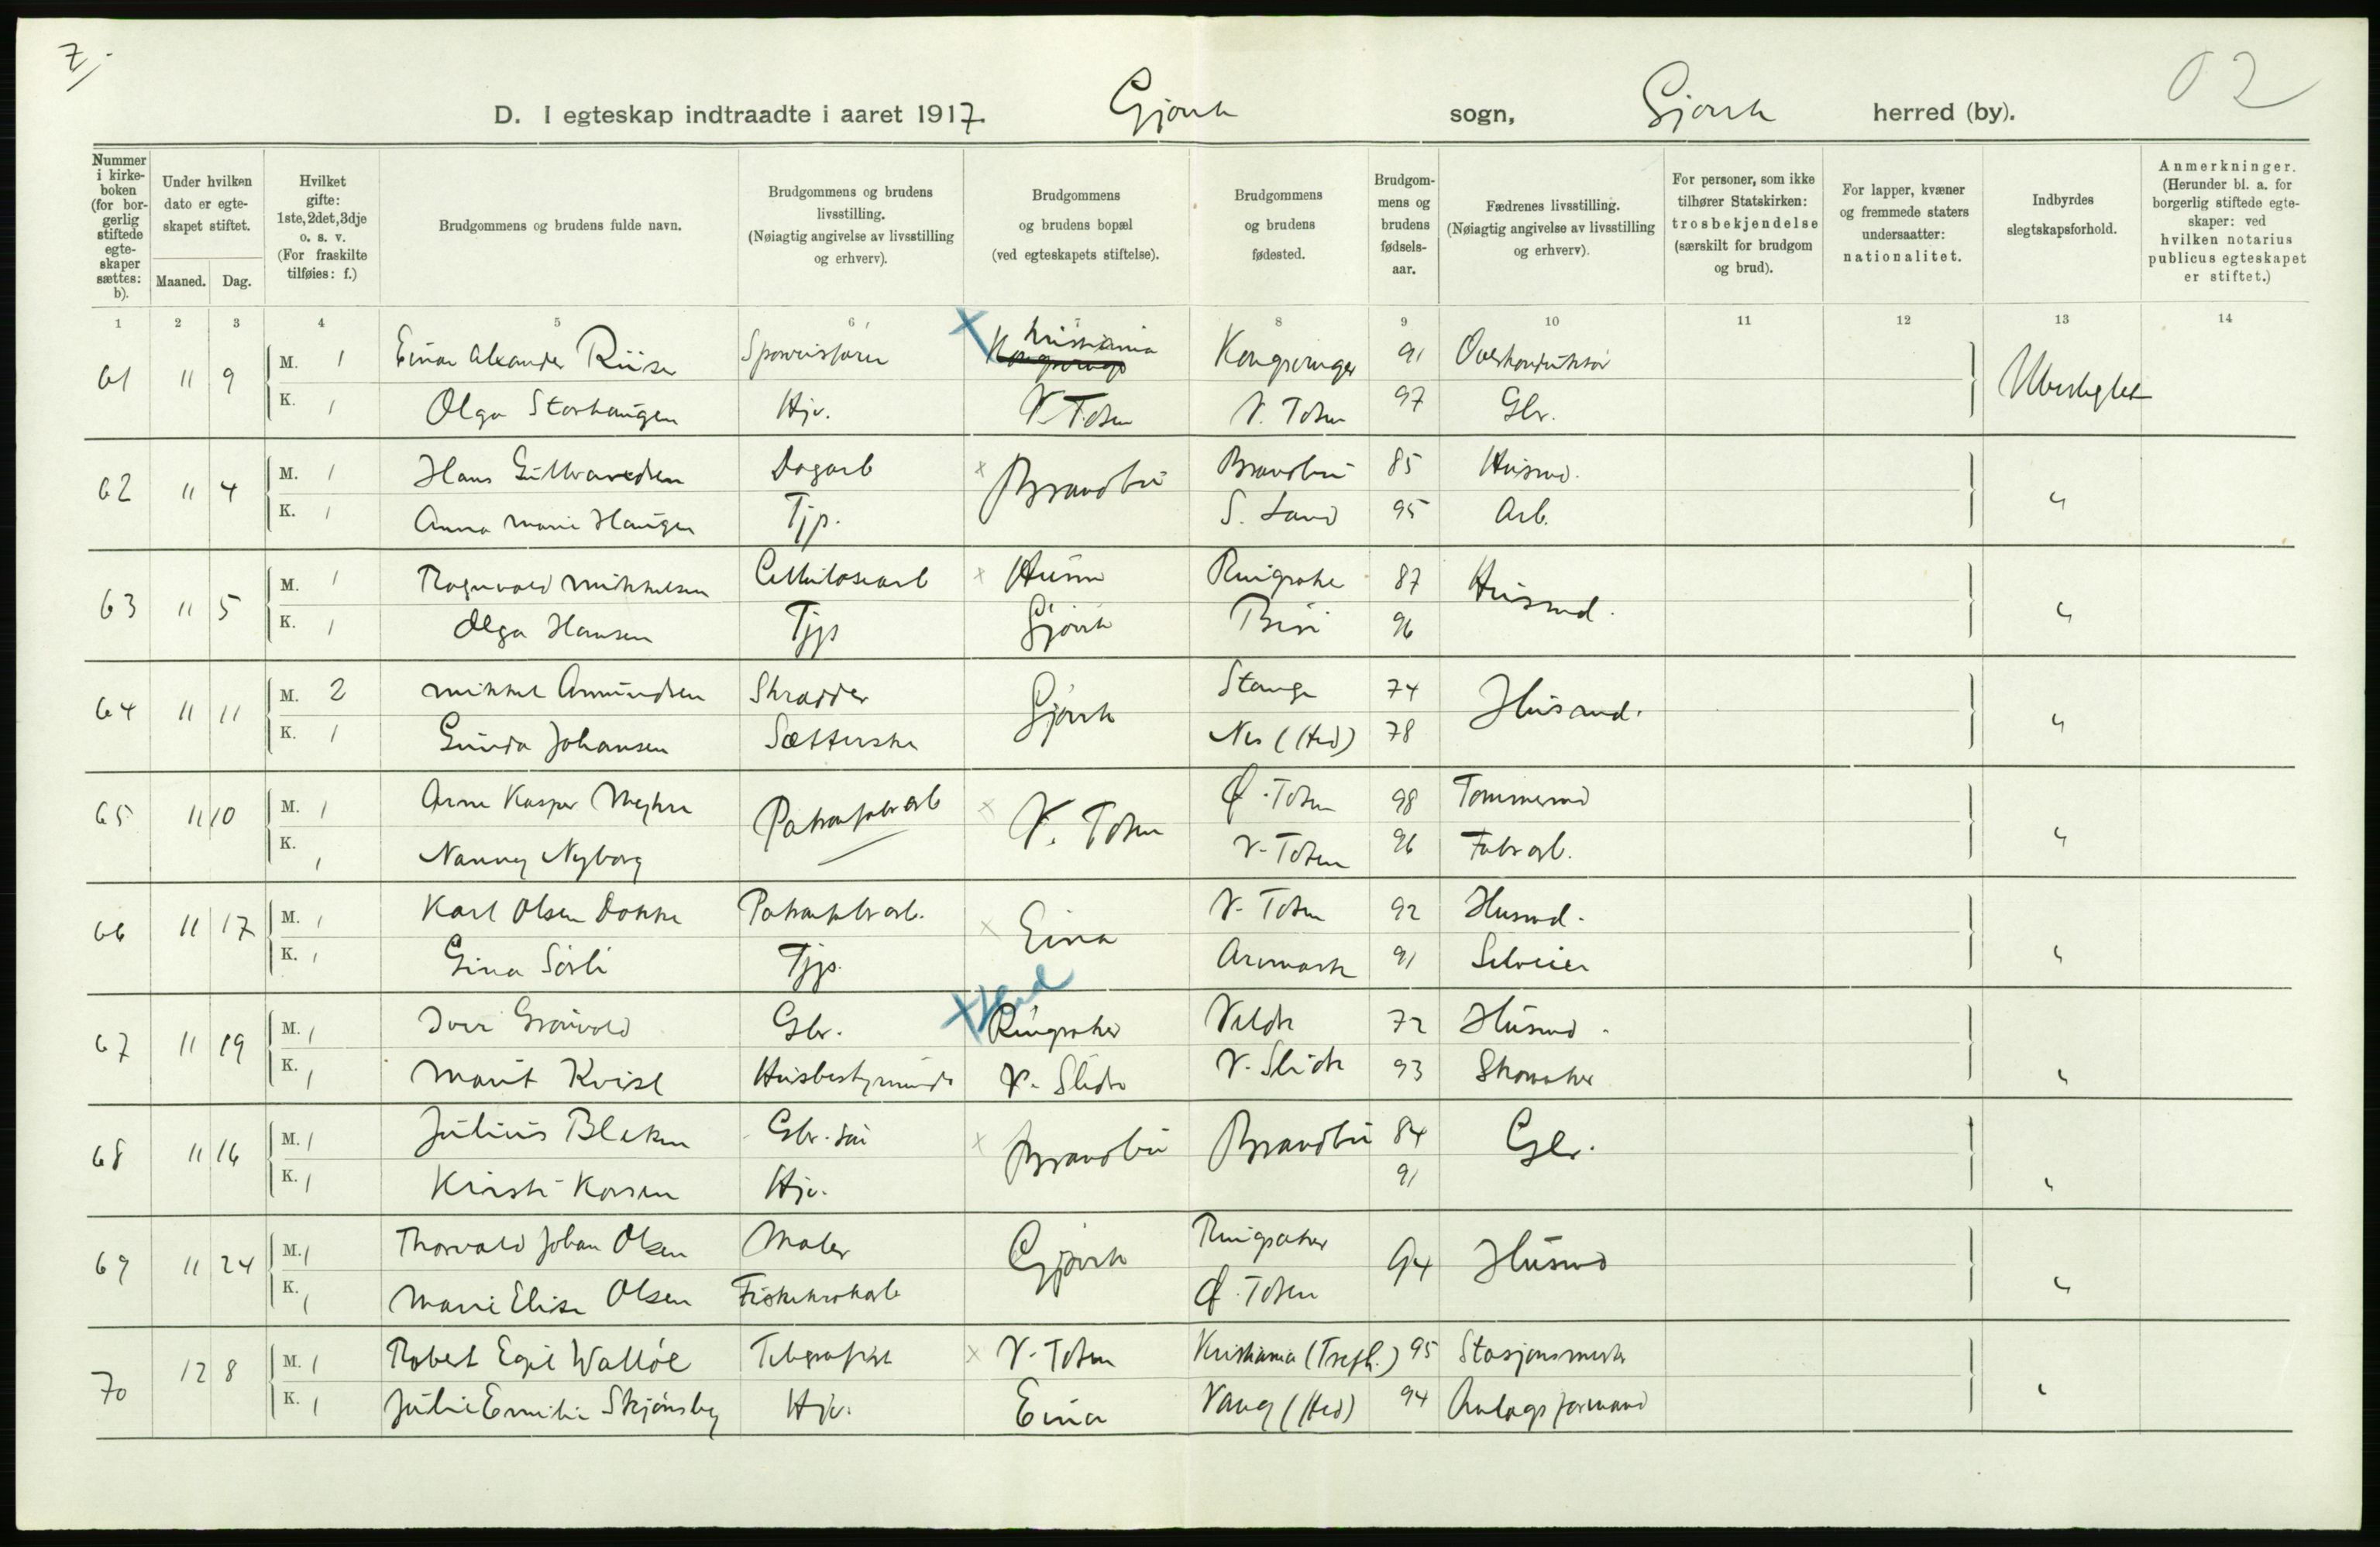 7.
02
D. I egteskap indtraadte i aaret 1917. Gjøvik sogn, Gjøvik herred (by).
Nummer i kirkeboken (for borgerlig stiftede egteskaper sættes: b).
Under hvilken dato er egteskapet stiftet.
Maaned. Dag.
Hvilket gifte: 1ste, 2det, 3dje o. s. v. (For fraskilte tilføies: f.)
Brudgommens og brudens fulde navn.
Brudgommens og brudens livsstilling. (Nøiagtig angivelse av livsstilling og erhverv).
Brudgommens og brudens bopæl (ved egteskapets stiftelse).
Brudgommens og brudens fødested.
Brudgommens og brudens fødselsaar.
Fædrenes livsstilling. (Nøiagtig angivelse av livsstilling og erhverv).
For personer, som ikke tilhører Statskirken: trosbekjendelse (særskilt for brudgom og brud).
For lapper, kvæner og fremmede staters undersaatter: nationalitet.
Indbyrdes slegtskapsforhold.
Anmerkninger. (Herunder bl. a. for borgerlig stiftede egteskaper: ved hvilken notarius publicus egteskapet er stiftet.)
1 2 3 4 5 6 7 8 9 10 11 12 13 14
61 11 9 M. 1 Einar Alexander Riiser Kristiania Kongsvinger 91 Overkonduktør Ubeslegtet
K. 1 Olga Storhaugen Hjv. V. Toten V. Toten 97 Gbr.
62 11 4 M. 1 Hans Gulbrandsen Dagarb Brandbu Brandbu 85 Husmd. "
K. 1 Anna Marie Haugen Tjp. S. Land 95 Arb.
63 11 5 M. 1 Ragnvald Mikkelsen Cellulosearb Hunn Ringsaker 87 Husmd. "
K. 1 Olga Hansen Tjp Gjøvik Biri 96
64 11 11 M. 2 Mikkel Amundsen Skrædder Gjøvik Stange 74 Husmd. "
K. 1 Gunda Johansen Sætterske Nes (Hed) 78
65 11 10 M. 1 Arne Kasper Patronfabrarb V. Toten Ø. Toten 98 Tømmermd "
K. 1 Nanny Nyborg V. Toten 96 Fabrarb.
66 11 17 M. 1 Karl Olsen Dokke Patronfabrarb. Eina V. Toten 92 Husmd. "
K. 1 Gina Sørli Tjp. Aremark 91 Selveier
67 11 19 M. 1 Iver Grønvold Gbr. Ringsaker Valdr 72 Husmd. "
K. 1 Marit Kvisl Husbestyrerinde V. Slidre V. Slidr 93 Skomaker
68 11 16 M. 1 Julius Bleken Gbr. søn Brandbu Brandbu 84 Gbr. "
K. 1 Kirsti Korsen Hjv. 91
69 11 24 M. 1 Thorvald Johan Olsen Maler Gjøvik Ringsaker 94 Husmd "
K. 1 Marie Elise Olsen Fiskekrokarb Ø. Toten
70 12 8 M. 1 Robert Egil Walløe Telegrafist V. Toten Kristiania (Trefh.) 95 Stasjonsmester "
K. 1 Julie Emilie Skjønsby Hjv. Eina Vang (Hed) 94 Anlægsformand